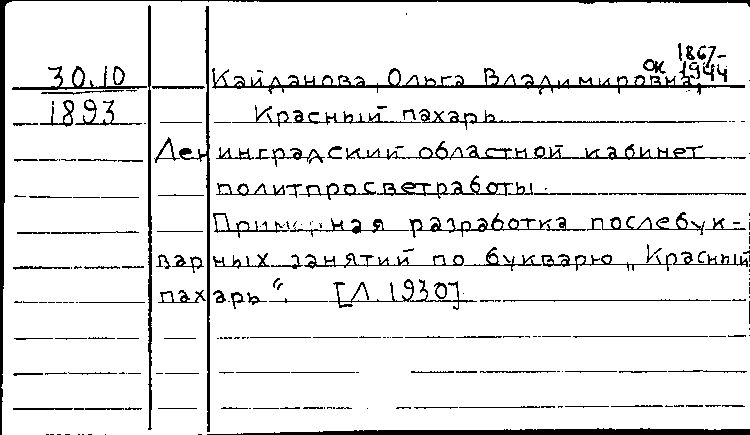 30.10
1893
Кайданова, Ольга Владимировна,
1867-
ок 1944
Красный пахарь.
Ленинградский областной кабинет
политпросветработы.
Примерная разработка послебук-
варных занятий по букварю „Красный
пахарь“. [Л. 1930]